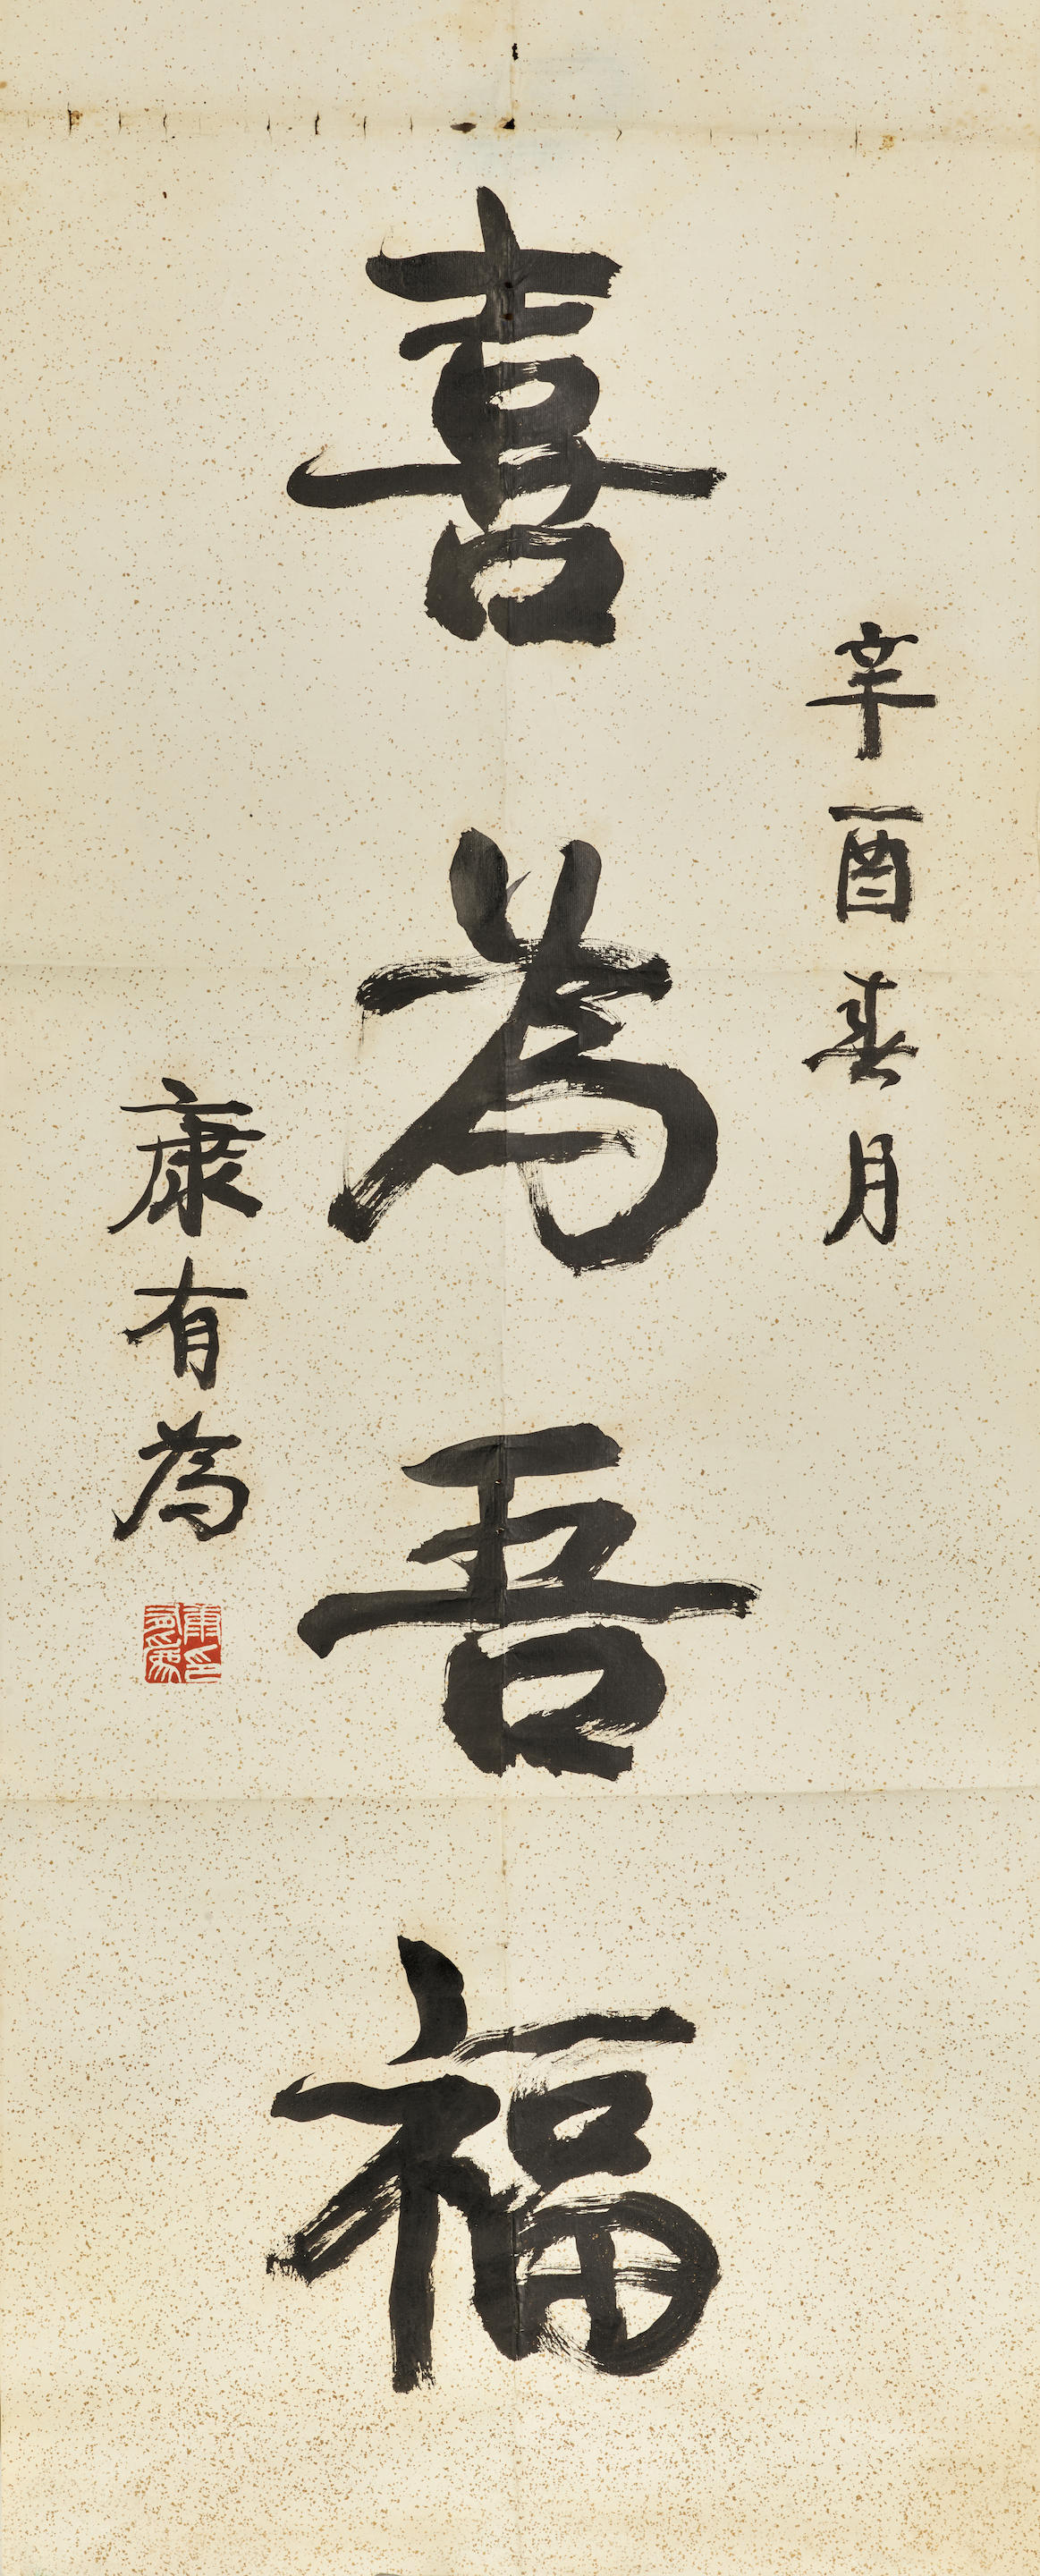 辛酉春月
喜為吾福
康有為
康有為印